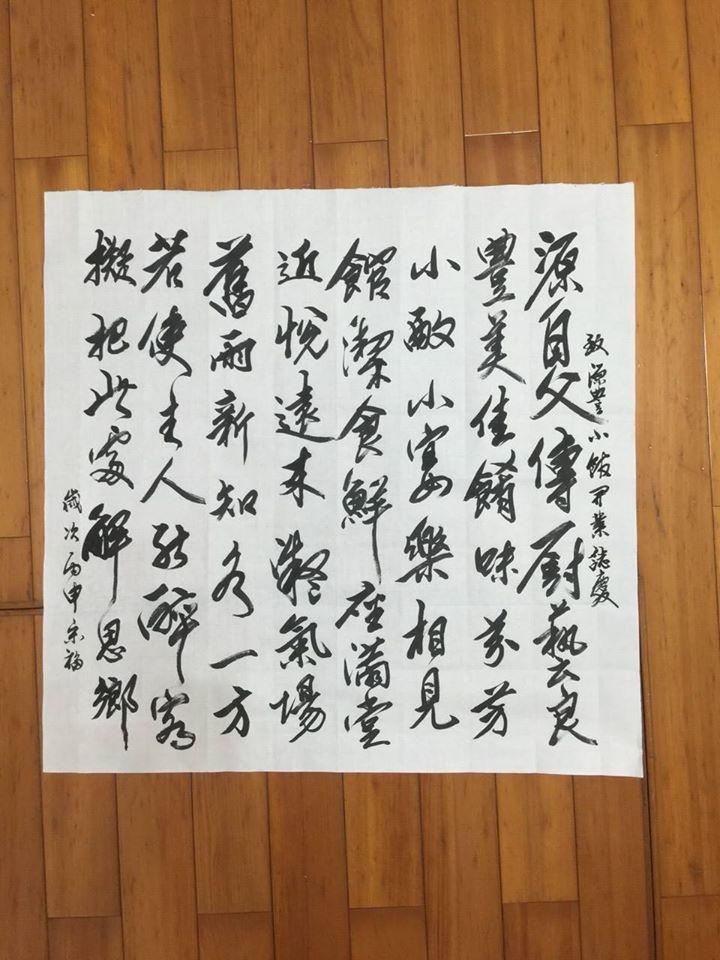 致源豐小館開業誌慶
源自父傳廚藝良
豐美佳餚味芬芳
小小宴樂相見
館潔食鮮座滿堂
近悅遠來凝氣場
舊雨新知各一方
若使主人能醉客
擬把此處解思鄉
歲次丙申宗福